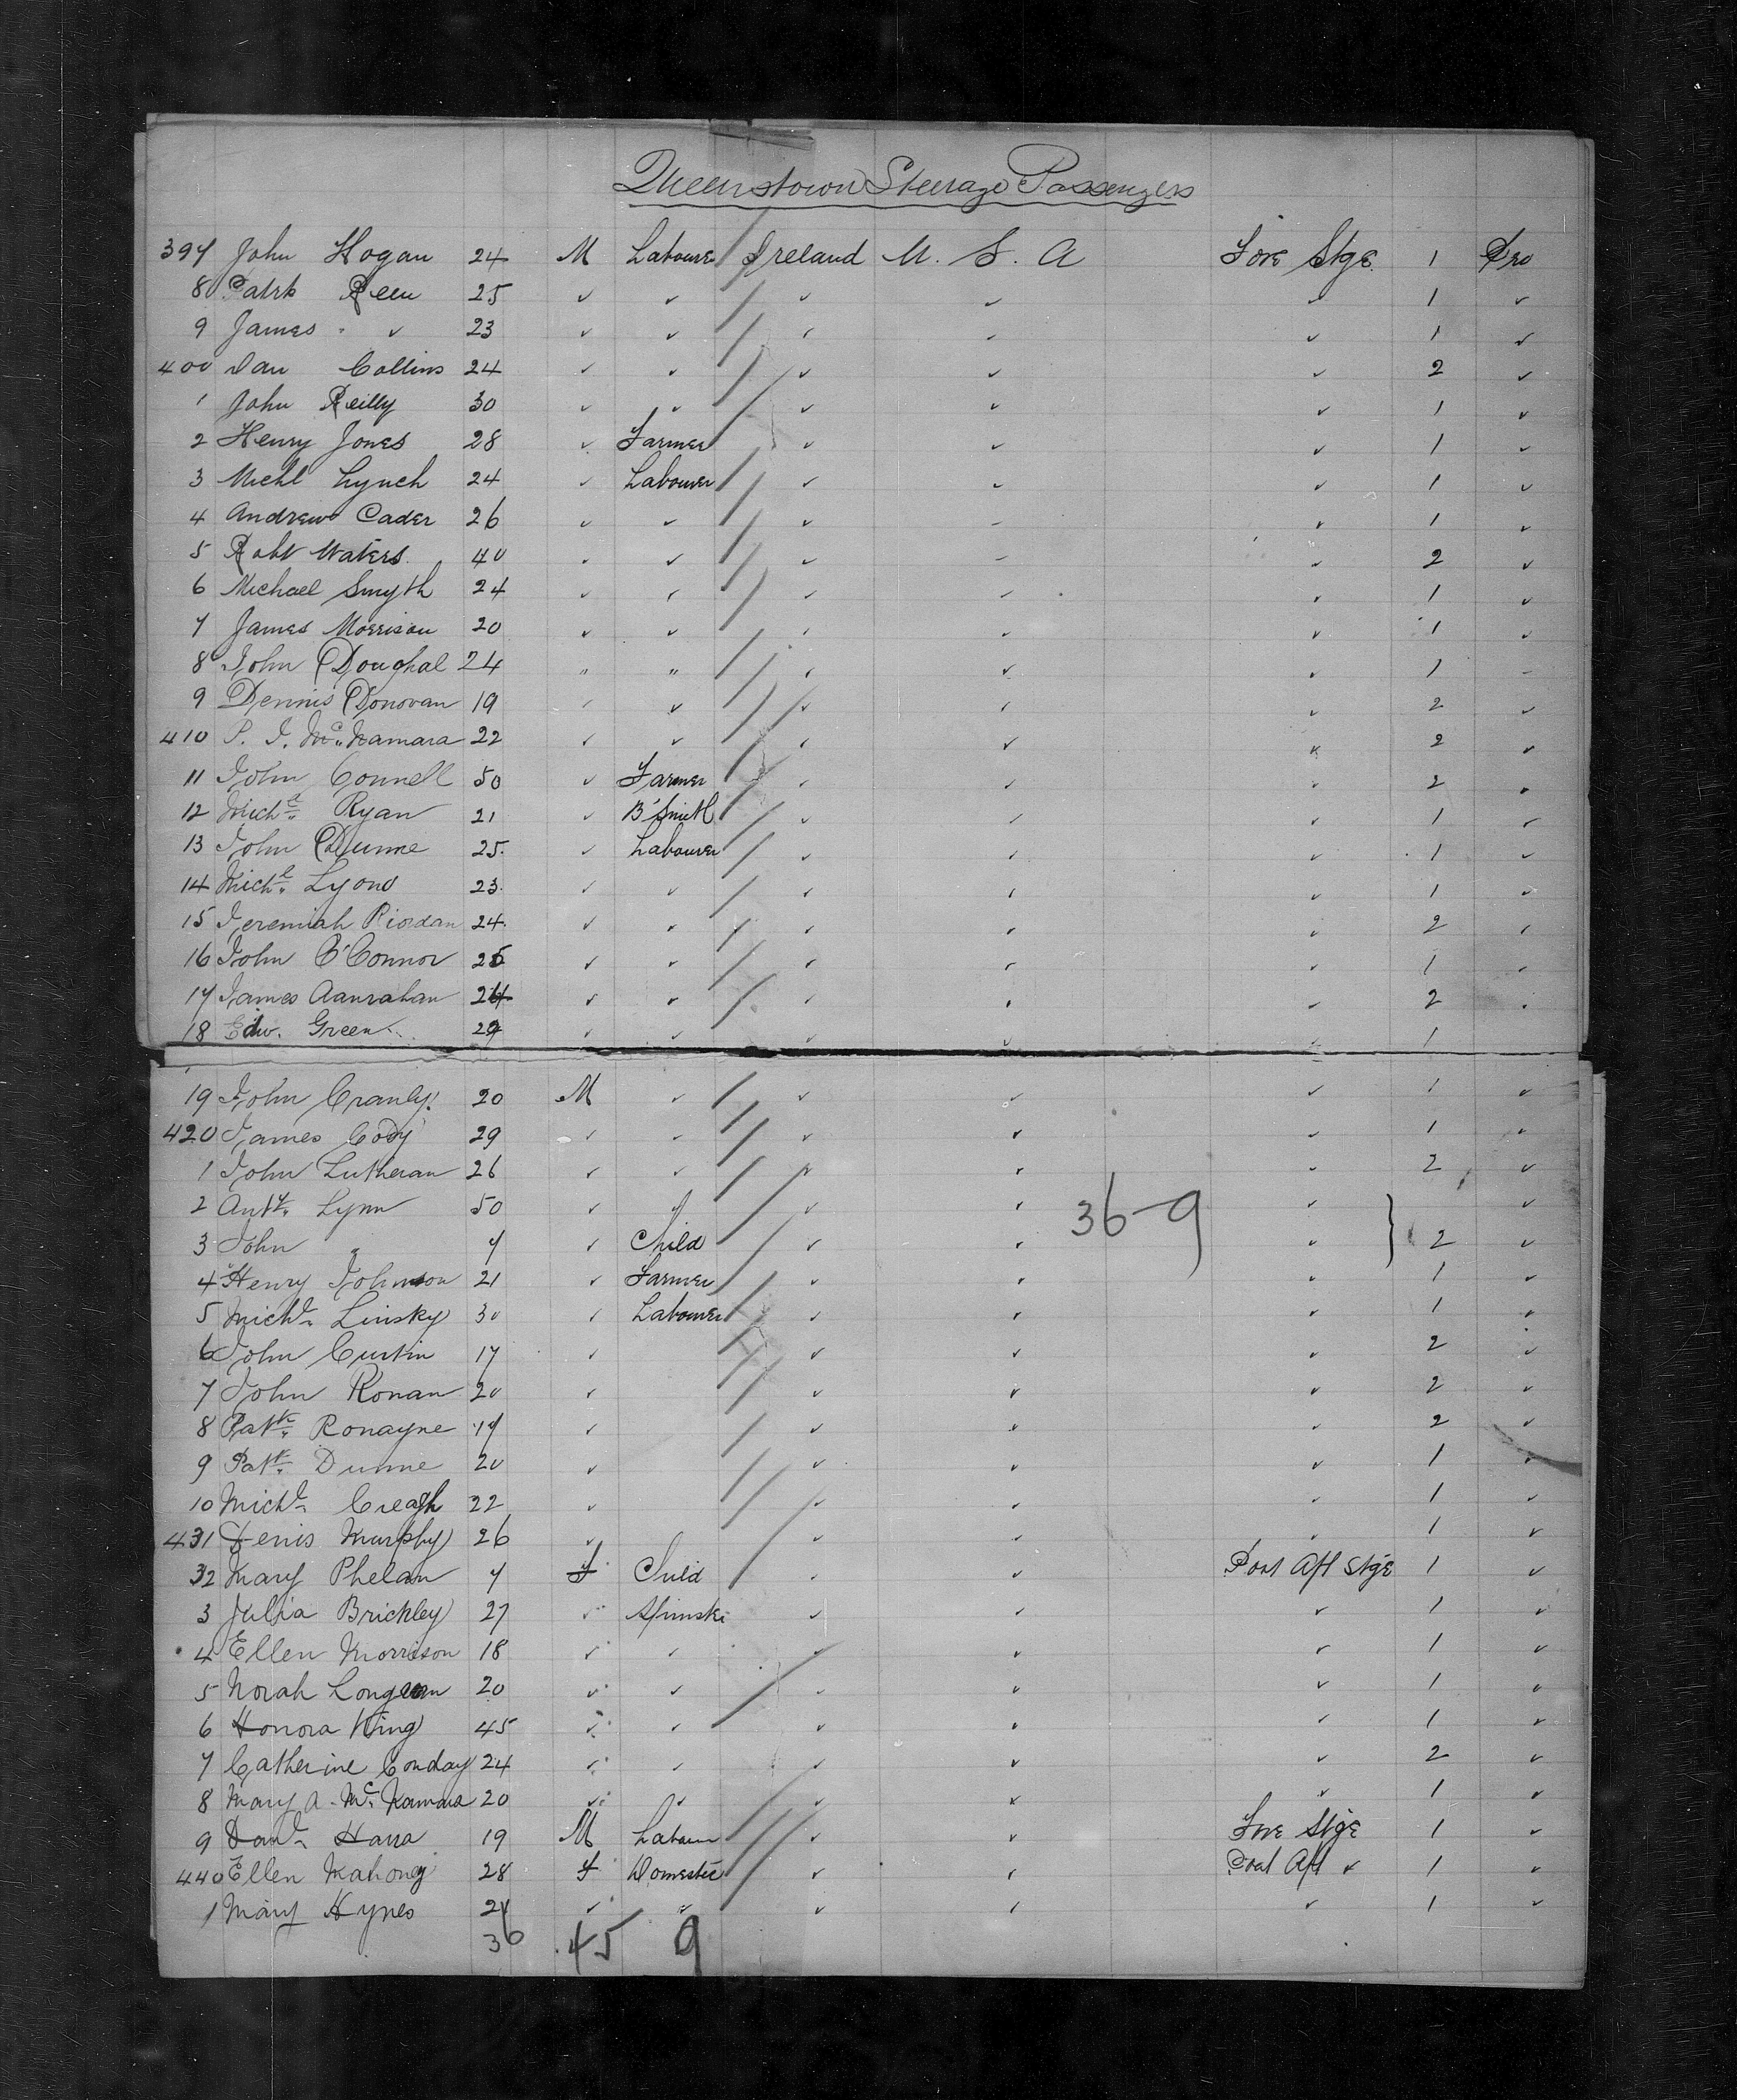 Queenstown Steerage Passengers
397 John Hogan 24 M Labourer Ireland U. S. A Fore Stge 1 Pro
8 Patrk Reen 25 ✓ ✓ ✓ ✓ ✓ 1 ✓
9 James " ✓ 23 ✓ ✓ ✓ ✓ ✓ 1 ✓
400 Dan Collins 24 ✓ ✓ ✓ ✓ ✓ 2 ✓
1 John Reilly 30 ✓ ✓ ✓ ✓ ✓ 1 ✓
2 Henry Jones 28 ✓ Farmer ✓ ✓ ✓ 1 ✓
3 Michl Lynch 24 ✓ Labourer ✓ ✓ ✓ 1 ✓
4 Andrew Cader 26 ✓ ✓ ✓ ✓ ✓ 1 ✓
5 Robt Waters 40 ✓ ✓ ✓ ✓ ✓ 2 ✓
6 Michael Smyth 24 ✓ ✓ ✓ ✓ ✓ 1 ✓
7 James Morrison 20 ✓ ✓ ✓ ✓ ✓ 1 ✓
8 John Doughal 24 " " ✓ ✓ ✓ 1 –
9 Dennis Donovan 19 ✓ ✓ ✓ ✓ ✓ 2 ✓
410 P. J. McNamara 22 ✓ ✓ ✓ ✓ ✓ 2 ✓
11 John Connell 50 ✓ Farmer ✓ ✓ ✓ 2 ✓
12 Michl Ryan 21 ✓ B'Smith ✓ ✓ ✓ 1 ✓
13 John Dunne 25 ✓ Labourer ✓ ✓ ✓ 1 ✓
14 Michl Lyons 23 ✓ ✓ ✓ ✓ ✓ 1 ✓
15 Jeremiah Riordan 24 ✓ ✓ ✓ ✓ ✓ 2 ✓
16 John O'Connor 25 ✓ ✓ ✓ ✓ ✓ 1 ✓
17 James Aanrahan 24 ✓ ✓ ✓ ✓ ✓ 2 ✓
18 Edw. Green 29 ✓ ✓ ✓ ✓ ✓ 1
19 John Cranly 20 M ✓ ✓ ✓ ✓ 1 ✓
420 James Cody 29 ✓ ✓ ✓ ✓ ✓ 1 ✓
1 John Lutheran 26 ✓ ✓ ✓ ✓ ✓ 2 ✓
2 Anty Lynn 50 ✓ ✓ ✓ ✓ ✓ ✓
36-9
3 John " 7 ✓ Child ✓ ✓ ✓ } 2 ✓
4 Henry Johnson 21 ✓ Farmer ✓ ✓ ✓ 1 ✓
5 Michl Linsky 30 ✓ Labourer ✓ ✓ ✓ 1 ✓
6 John Curtin 17 ✓ ✓ ✓ ✓ 2 ✓
7 John Ronan 20 ✓ ✓ ✓ ✓ 2 ✓
8 Patk Ronayne 19 ✓ ✓ ✓ ✓ 2 ✓
9 Patk Dunne 20 ✓ ✓ ✓ ✓ 1 ✓
10 Michl Creagh 22 ✓ ✓ ✓ ✓ 1 ✓
431 Denis Murphy 26 ✓ ✓ ✓ ✓ 1 ✓
32 Mary Phelan 7 F Child ✓ ✓ Post Aft Stge 1 ✓
3 Julia Brickley 27 ✓ Spinster ✓ ✓ ✓ 1 ✓
4 Ellen Morrison 18 ✓ ✓ ✓ ✓ ✓ 1 ✓
5 Norah 20 ✓ ✓ ✓ ✓ ✓ 1 ✓
6 Honora King 45 ✓ ✓ ✓ ✓ ✓ 1 ✓
7 Catherine Conday 24 ✓ ✓ ✓ ✓ ✓ 2 ✓
8 Mary A. McNamara 20 ✓ ✓ ✓ ✓ ✓ 1 ✓
9 Danl Hara 19 M Labourer ✓ ✓ Fore Stge 1 ✓
440 Ellen Mahony 28 F Domestic ✓ ✓ Post Aft ✓ 1 ✓
1 Mary Hynes ✓ ✓ ✓ ✓ ✓ 1 ✓
36 45 9